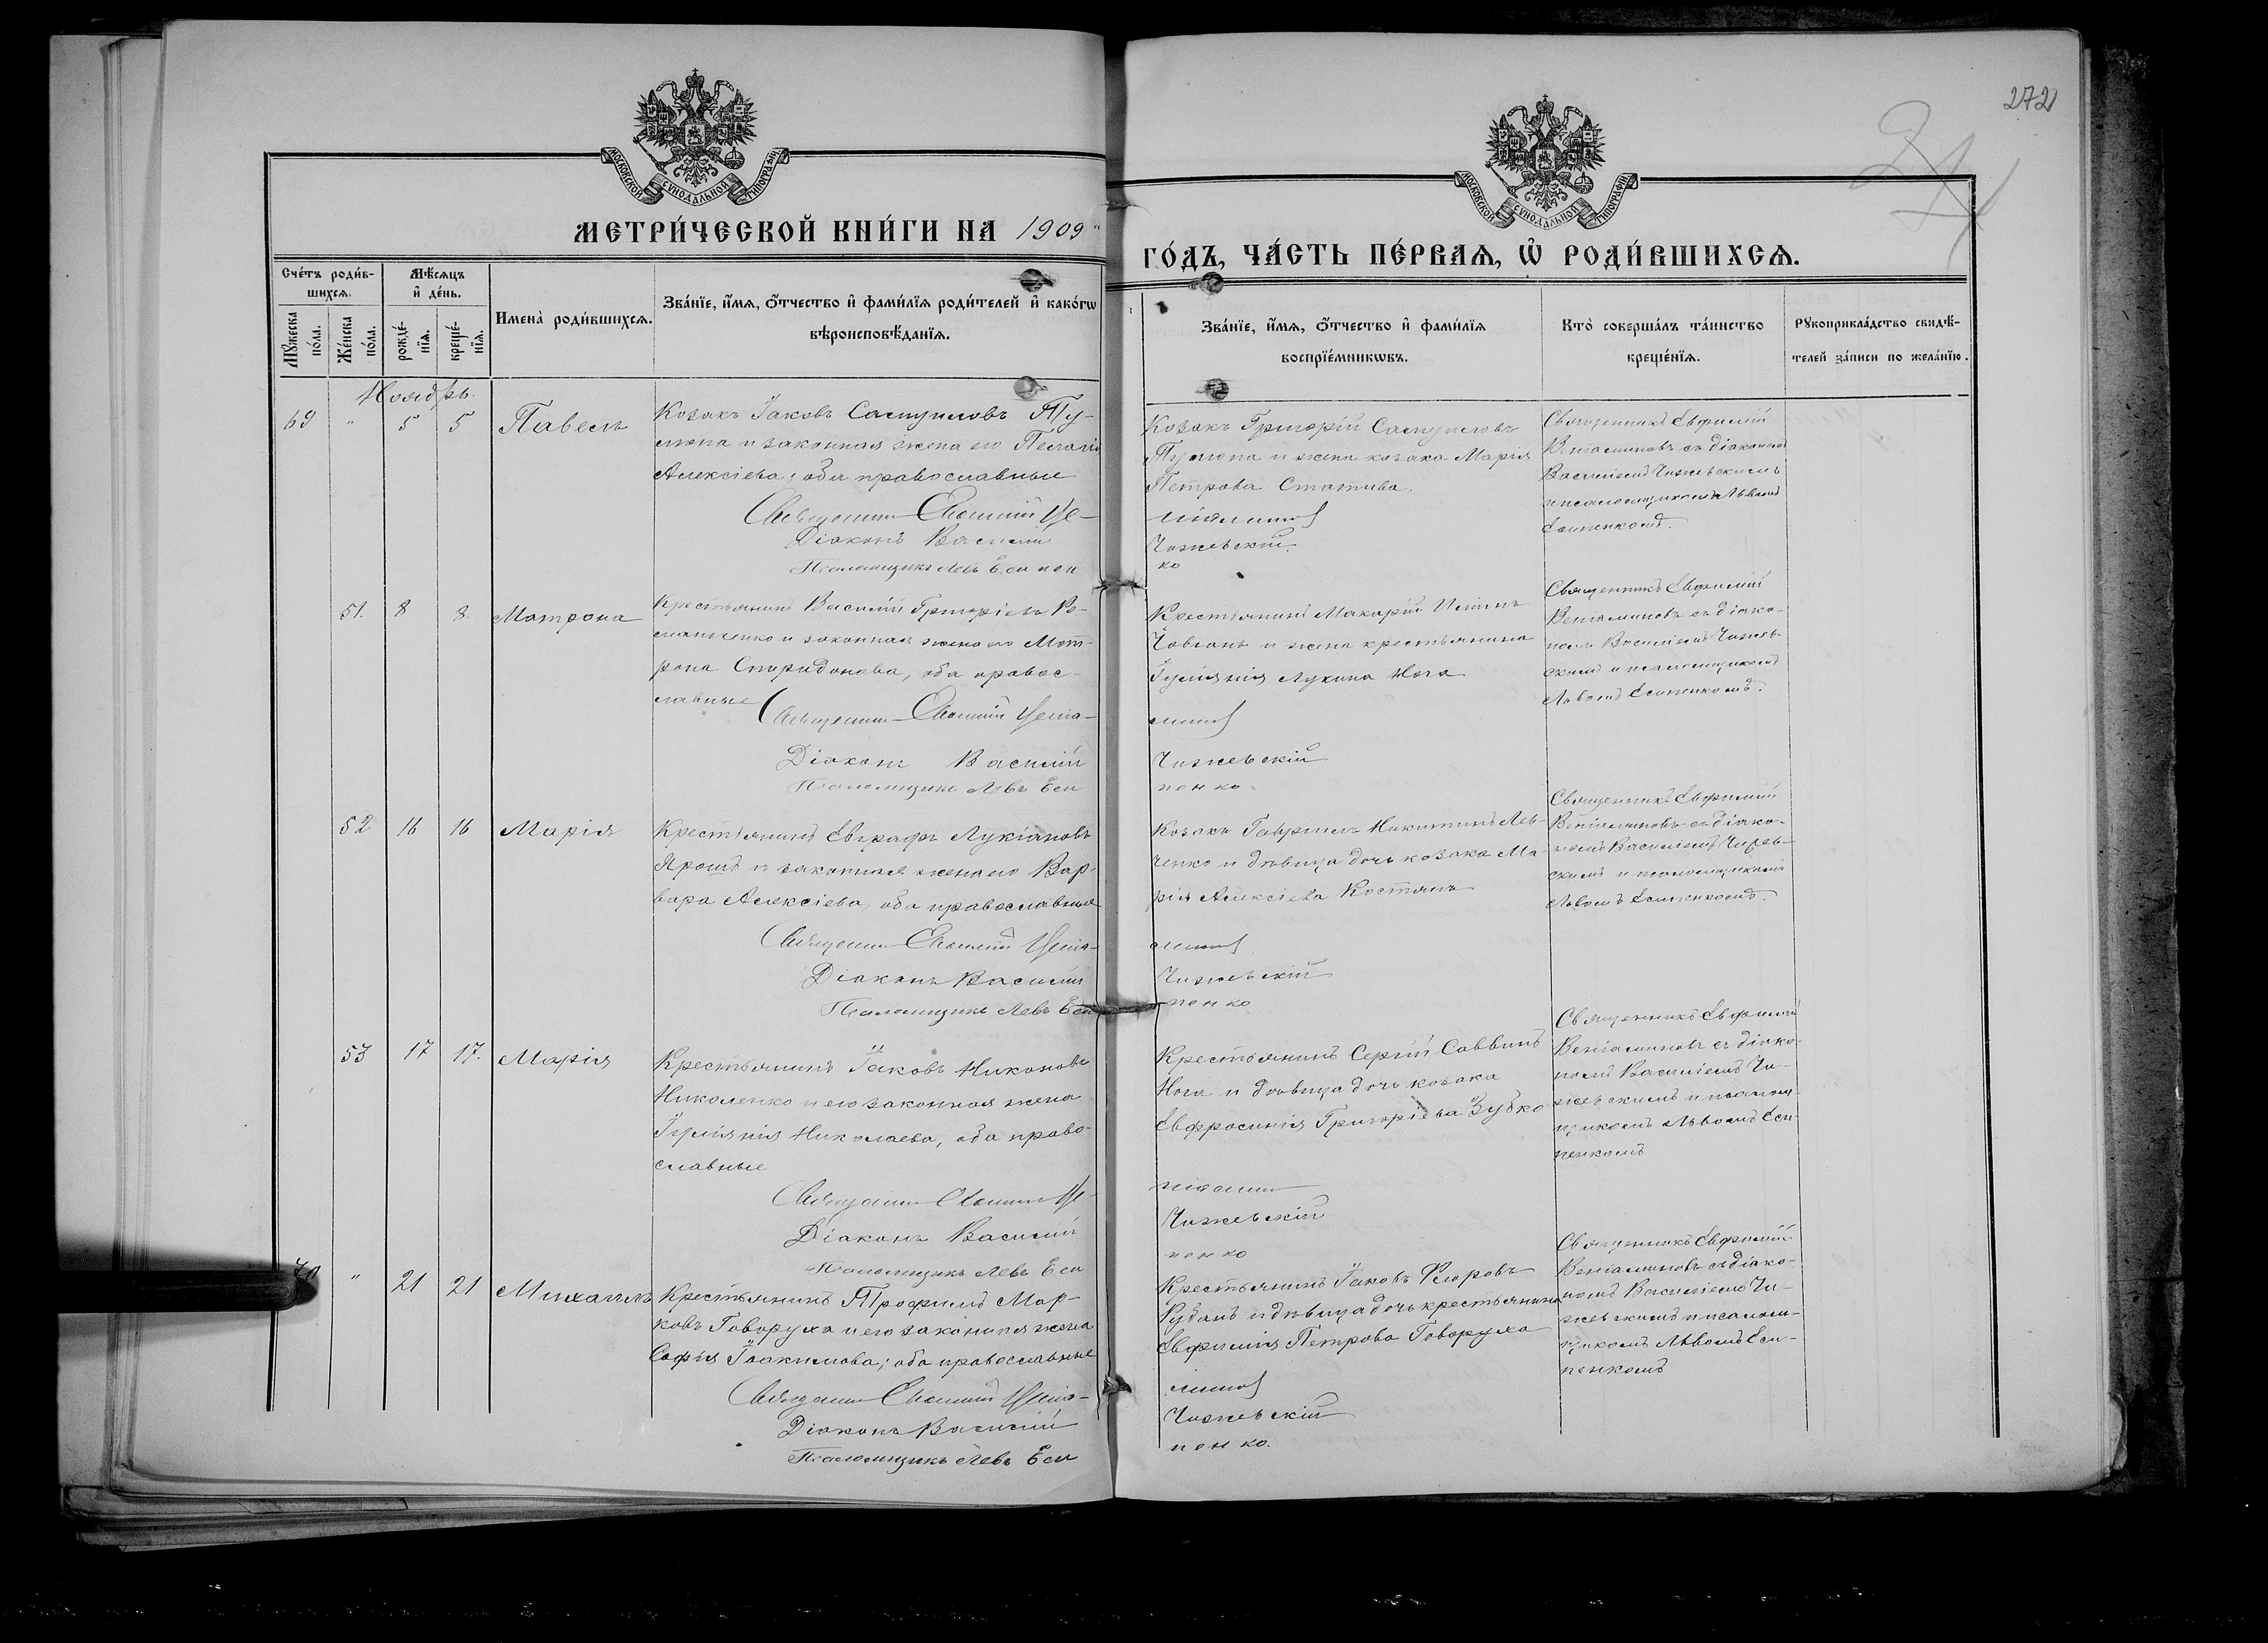 272
МОСКОВСКОЙ СУНОДАЛЬНОЙ ТИПОГРАФІИ
МОСКОВСКОЙ СУНОДАЛЬНОЙ ТИПОГРАФІИ
МЕТРИ́ЧЕСКОЙ КНИ́ГИ НА 1909
ГО́ДЪ, ЧА́СТЬ ПЕ́РВАЯ, Ѡ҆ РОДИ́ВШИХСЯ.
Сче́тъ роди́в-
шихся.
Мѣ́сяцъ
и҆ де́нь.
Мꙋ́жеска
по́ла.
Же́нска
по́ла.
рожде́-
нїя.
креще́-
нїя.
Имена̀ роди́вшихся.
Зва́нїе, и҆́мя, ѻ҆́тчество и҆ фами́лїя роди́телей и҆ како́гѡ
вѣроисповѣ́данїя.
Зва́нїе, и҆́мя, ѻ҆́тчество и҆ фами́лїя
воспрїе́мникѡвъ.
Кто̀ соверша́лъ та́инство
креще́нїя.
Рꙋкоприкла́дство свидѣ́-
телей за́писи по жела́нїю.
Ноябрь.
69 " 5 5 Павелъ
Козакъ Іаковъ Самуиловъ
и законная жена его
Алексіева, оба православные
Священникъ Евфимій Ве-
Діаконъ Василій
Псаломщикъ Левъ Есипен
Козакъ Григорій Самуиловъ
и жена козака Марія
Петрова Статива.
ніаминовъ
Чижевскій
ко
Священникъ Евфимій
Веніаминовъ съ діакономъ
Василіемъ Чижевскимъ
и псаломщикомъ Львомъ
Есипенкомъ.
51. 8 8. Матрона
Крестьянинъ Василій Григоріевъ Ро-
маненко и законная жена его Мат-
рона Спиридонова, оба правос-
лавные
Священникъ Евфимій Веніа-
Діаконъ Василій
Псаломщикъ Левъ Еси
Крестьянинъ Макарій
и жена крестьянина
Іуліанія Лукина Нога
миновъ
Чижевскій
пенко.
Священникъ Евфимій
Веніаминовъ съ діако-
номъ Василіемъ Чижев-
скимъ и псаломщикомъ
Львомъ Есипенкомъ.
52 16 16 Марія
Крестьянинъ Евграфъ Лукіановъ
Ярошъ и законная жена его Вар-
вара Алексіева, оба православные
Священникъ Евфимій Веніа-
Діаконъ Василій
Псаломщикъ Левъ Еси
Козакъ Гавриилъ Никитинъ Лев-
ченко и дѣвица дочь козака Ма-
рія Алексіева Костянъ
миновъ
Чижевскій
пенко
Священникъ Евфимій
Веніаминовъ съ діако-
номъ Василіемъ Чижев-
скимъ и псаломщикомъ
Львомъ Есипенкомъ.
53 17 17. Марія
Крестьянинъ Іаковъ Никоновъ
Николенко и его законная жена
Іуліанія Николаева, оба право-
славные
Священникъ Евфимій Ве-
Діаконъ Василій
Псаломщикъ Левъ Еси
Крестьянинъ Сергій Саввинъ
Нога и дѣвица дочь козака
Евфросинія Григоріева Зубко
ніаминовъ
Чижевскій
пенко
Священникъ Евфимій
Веніаминовъ съ діако-
номъ Василіемъ Чи-
жевскимъ и псалом-
щикомъ Львомъ Еси-
пенкомъ
70 " 21 21 Михаилъ
Крестьянинъ Трофимъ Мар-
ковъ Говоруха и его законная жена
Софія Іоакимова; оба православные
Священникъ Евфимій Веніа-
Діаконъ Василій
Псаломщикъ Левъ Еси
Крестьянинъ Іаковъ
Рубанъ и дѣвица дочь крестьянина
Евфимія Петрова Говоруха
миновъ
Чижевскій
пенко.
Священникъ Евфимій
Веніаминовъ съ діако-
номъ Василіемъ Чи-
жевскимъ и псалом-
щикомъ Львомъ Еси-
пенкомъ